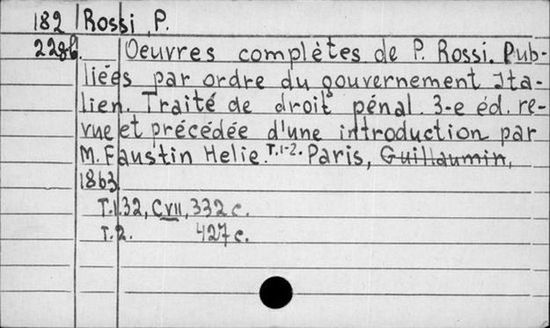 182 Rossi, P.
228b. Oeuvres complètes de P. Rossi. Pub-
liées par ordre du gouvernement Ita-
lien. Traité de droit pénal. 3-e éd. re-
vue et précédée d'une introduction par
M. Faustin Helie. T.1-2. Paris, Guillaumin,
1863
T.1. 32, CVII, 332 c.
T.2. 427 c.